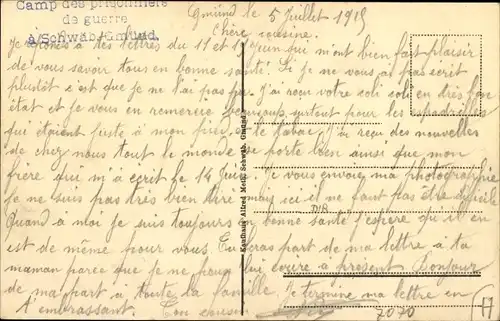 Camp des prisonniers
de guerre
à Schwäb. Gmünd.
Gmünd le 5 Juillet 1915
Chère cousine.
Je réponds à tes lettres du 11 et 19 Juin qui m'ont bien fait plaisir
de vous savoir tous en bonne santé. Si je ne vous ai pas écrit
plustôt c'est que je ne l'ai pas pu. J'ai reçu votre coli en très bon
état et je vous en remercie beaucoup surtout pour les espadrilles
qui étaient juste à mon pied et le tabac. J'ai reçu des nouvelles
de chez nous tout le monde se porte bien ainsi que mon
frère qui m'a écrit le 14 Juin. Je vous envoie ma photographie
je ne suis pas très bien mais ici il ne faut pas être difficile
Quand à moi je suis toujours en bonne santé j'espère qu'il en
est de même pour vous. Tu feras part de ma lettre à ta
maman parce que je ne peux lui écrire à présent. Bonjour
de ma part à toute la famille. Je termine ma lettre en
t'embrassant. Ton cousin
Kaufhaus Alfred Meth, Schwäb. Gmünd
7070
H